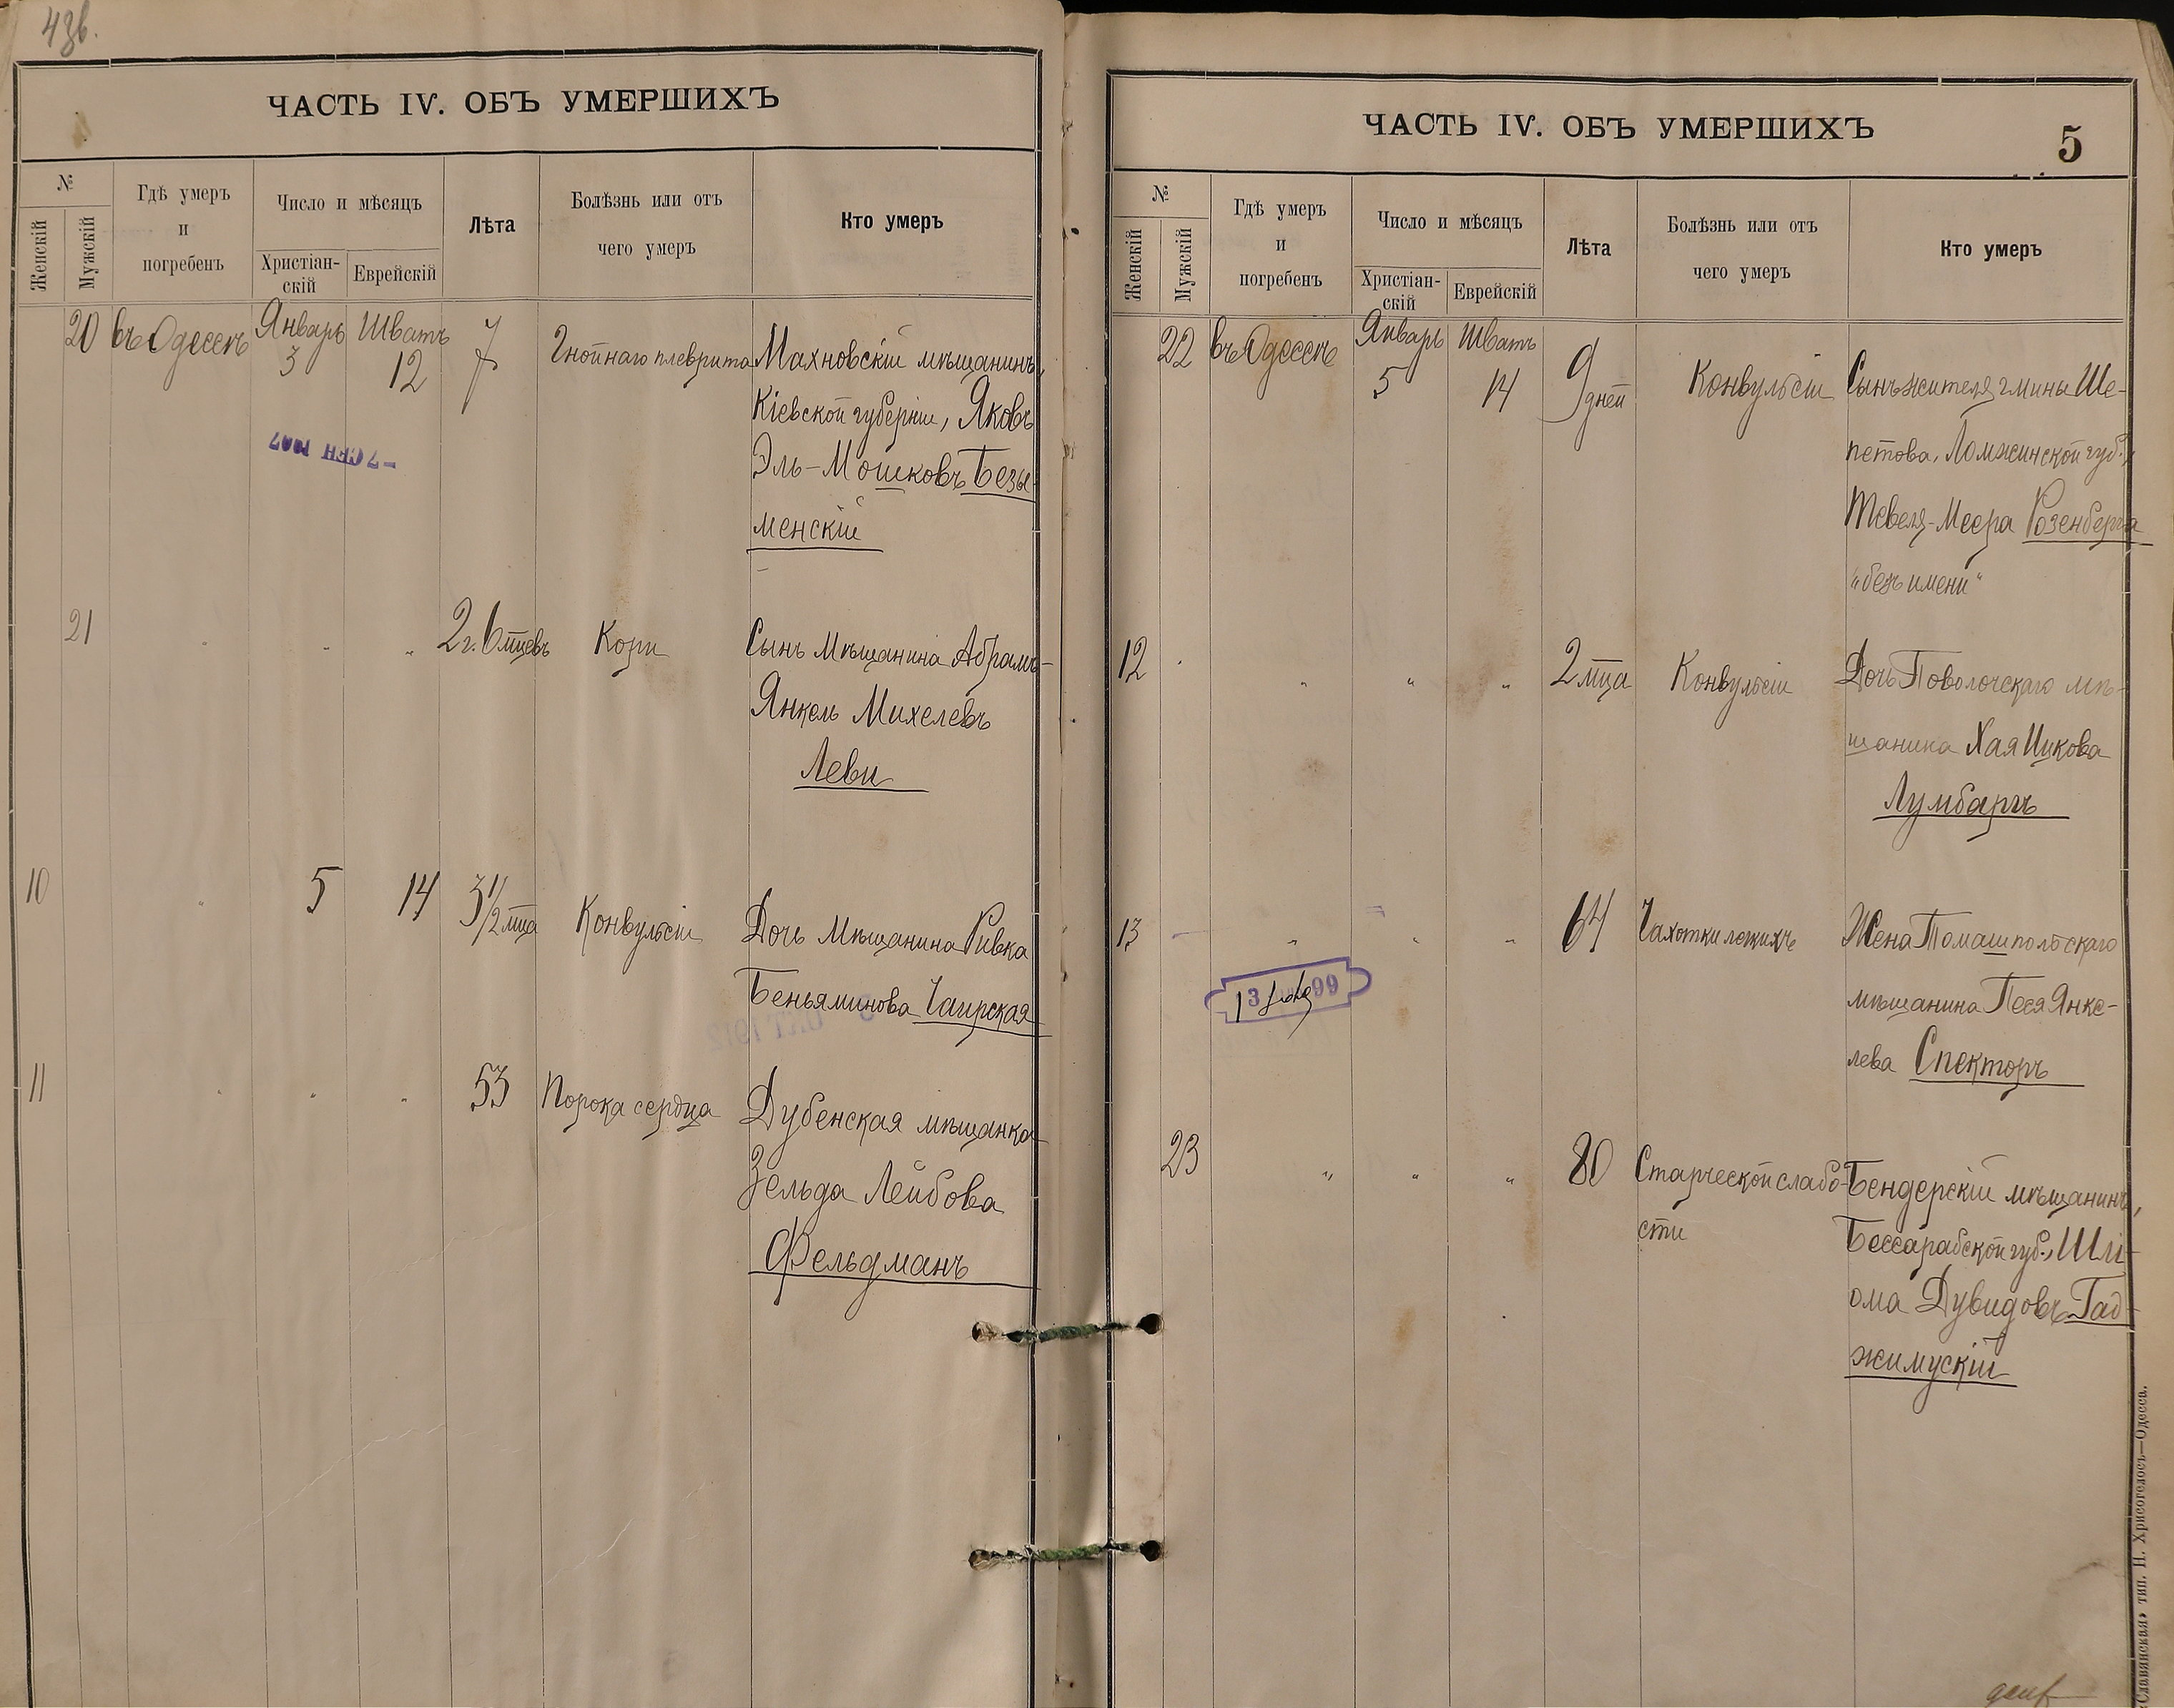 ЧАСТЬ IV. ОБЪ УМЕРШИХЪ
№
Женскій
Мужскій
Гдѣ умеръ
и
погребенъ
Число и мѣсяцъ
Христіан-
скій
Еврейскій
Лѣта
Болѣзнь или отъ
чего умеръ
Кто умеръ
20 въ Одессѣ Январь 3 Шватъ 12 7 Гнойнаго плеврита Махновскій мѣщанинъ,
Кіевской губерніи, Яковъ
Эль-Мошковъ Безы-
менскій
-7 СЕН 1907
21 " " " 2 г. 6 мцевъ Кори Сынъ Мѣщанина Абрамъ-
Янкель Михелевъ
Леви
10 " 5 14 3 1/2 мца Конвульсіи Дочь Мѣщанина Ривка
Беньяминова Чаирская
ОКТ 1912
11 " " " 53 Порока сердца Дубенская мѣщанка
Зельда Лейбова
Фельдманъ
ЧАСТЬ IV. ОБЪ УМЕРШИХЪ
5
№
Женскій
Мужскій
Гдѣ умеръ
и
погребенъ
Число и мѣсяцъ
Христіан-
скій
Еврейскій
Лѣта
Болѣзнь или отъ
чего умеръ
Кто умеръ
22 въ Одессѣ Январь 5 Шватъ 14 9 дней Конвульсіи Сынъ жителя гмины Ше-
петова, Ломжинской губ.,
Тевеля-Меера Розенберга
"безъ имени"
12 " " " 2 мца Конвульсіи Дочь Поволочскаго мѣ-
щанина Хая Ицкова
Лумбаргъ
13 " " " 64 Чахотки легкихъ Жена Томашпольскаго
мѣщанина Песя Янке-
лева Спекторъ
99
23 " " " 80 Старческой слабо- Бендерскій мѣщанинъ,
сти Бессарабской губ., Шлі-
ома Дувидовъ Гад-
жимускій
«Славянская» тип. Н. Хрисогелосъ—Одесса.